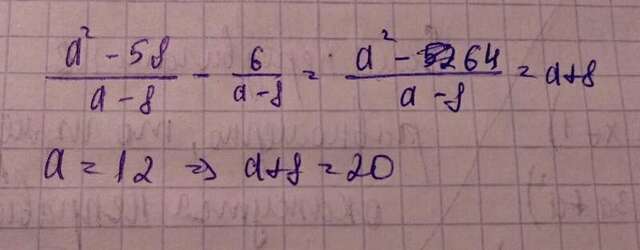 (a² - 58)/(a - 8) - 6/(a - 8) = (a² - 64)/(a - 8) = a+8
a = 12 => a+8 = 20